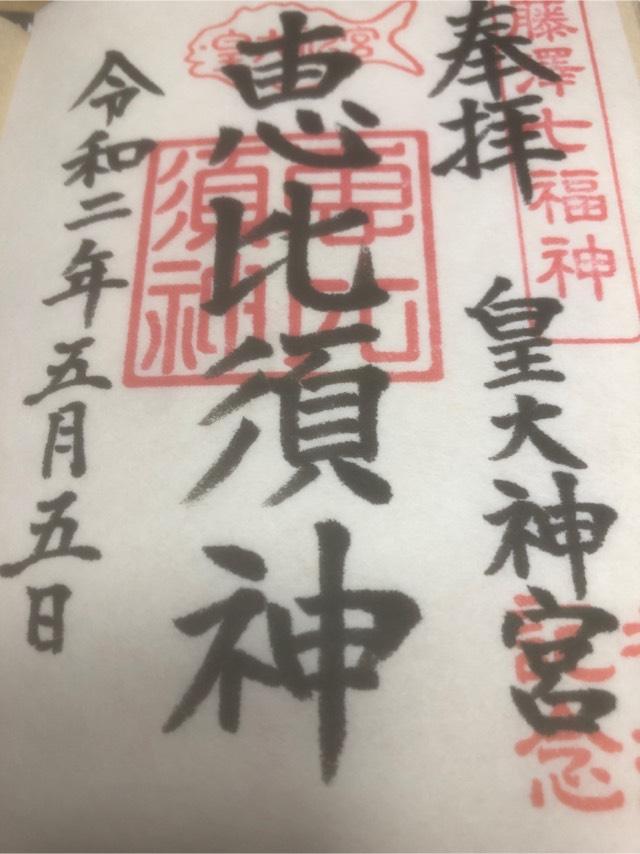 藤澤七福神
奉拝
皇大神宮
記念
恵比須神
恵比須神
令和二年五月五日